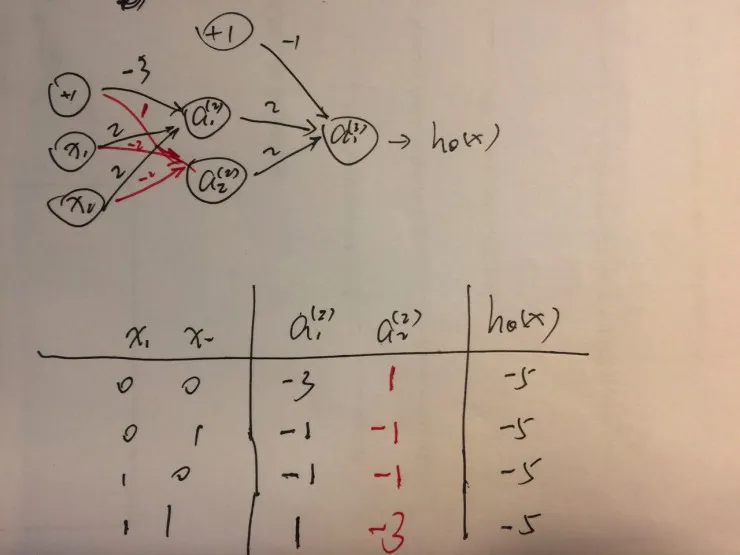 +1 -1
-3
+1 1 a₁⁽²⁾ 2
x₁ 2 -2 a₁⁽³⁾ → hθ(x)
2 -2 a₂⁽²⁾ 2
x₂
x₁ x₂ a₁⁽²⁾ a₂⁽²⁾ hθ(x)
0 0 -3 1 -5
0 1 -1 -1 -5
1 0 -1 -1 -5
1 1 1 -3 -5